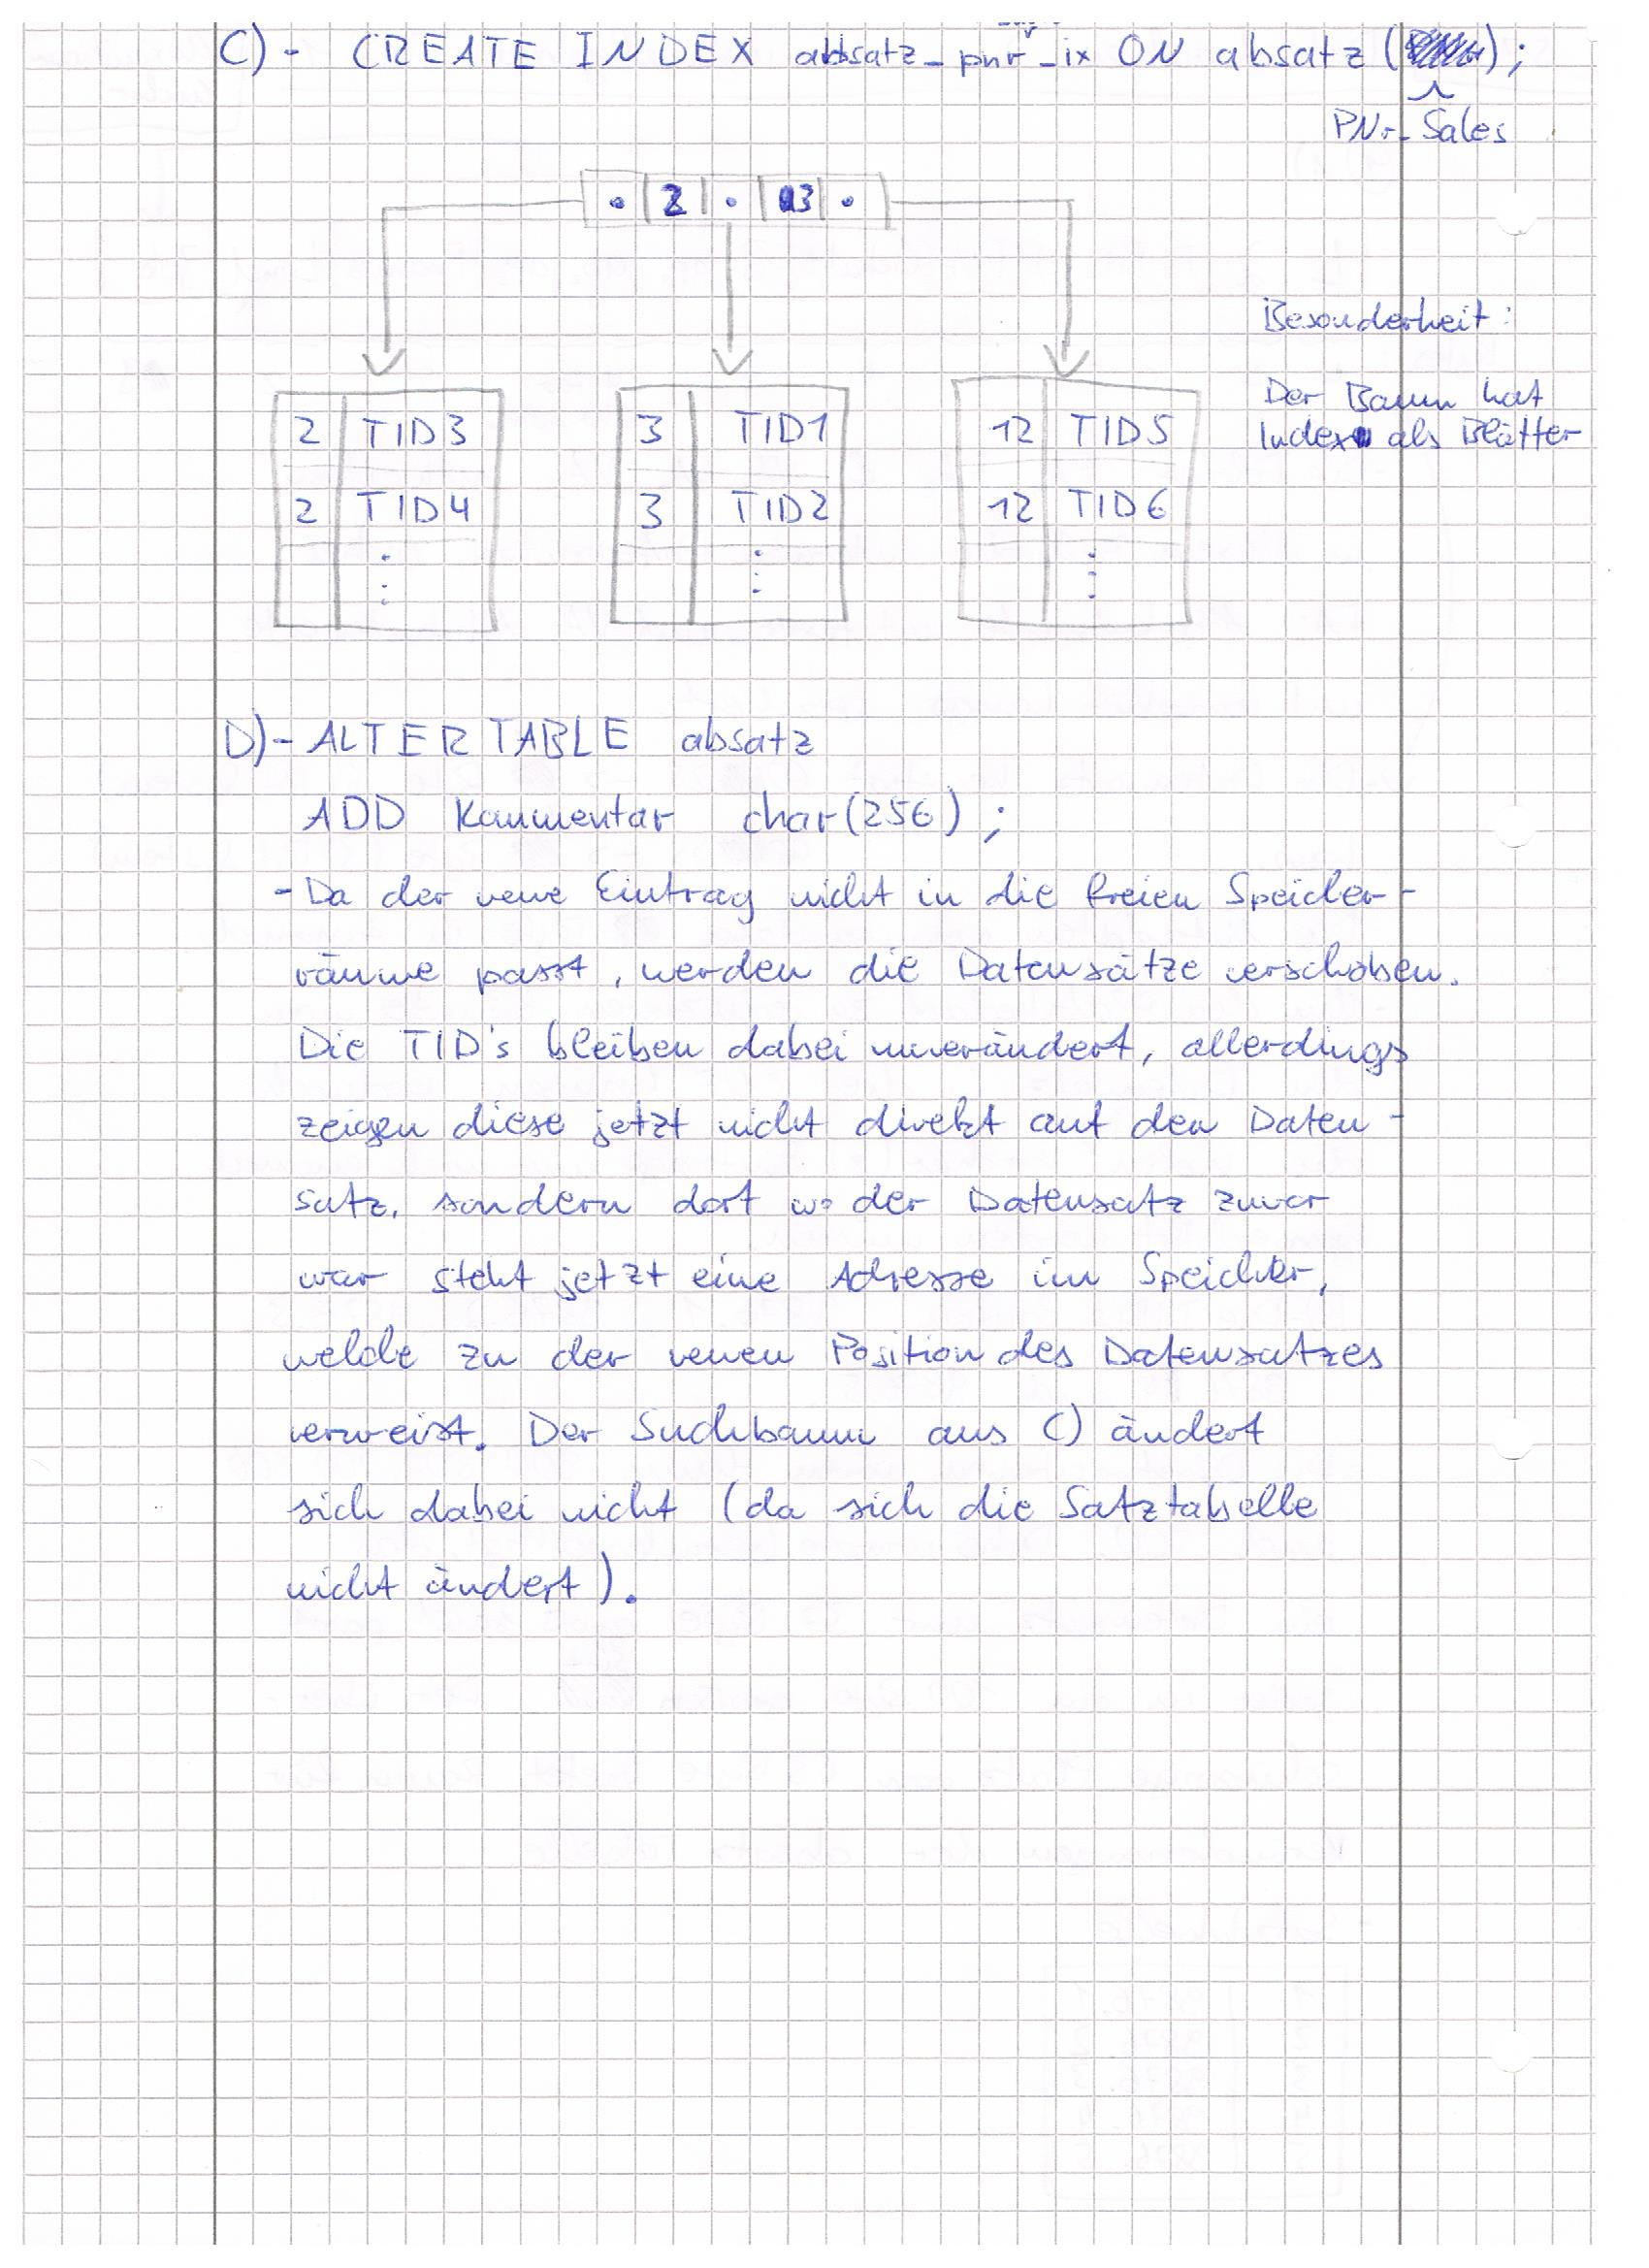 C) - CREATE INDEX absatz_pnr_ix ON absatz ( );
PNr_Sales
• 2 • 3 •
Besonderheit:
Der Baum hat
Index als Blätter
2 TID3 3 TID1 12 TID5
2 TID4 3 TID2 12 TID6
D) - ALTER TABLE absatz
ADD Kommentar char(256);
- Da der neue Eintrag nicht in die freien Speicher-
räume passt, werden die Datensätze verschoben.
Die TID's bleiben dabei unverändert, allerdings
zeigen diese jetzt nicht direkt auf den Daten-
satz, sondern dort wo der Datensatz zuvor
war steht jetzt eine Adresse im Speicher,
welche zu der neuen Position des Datensatzes
verweist. Der Suchbaum aus C) ändert
sich dabei nicht (da sich die Satztabelle
nicht ändert).